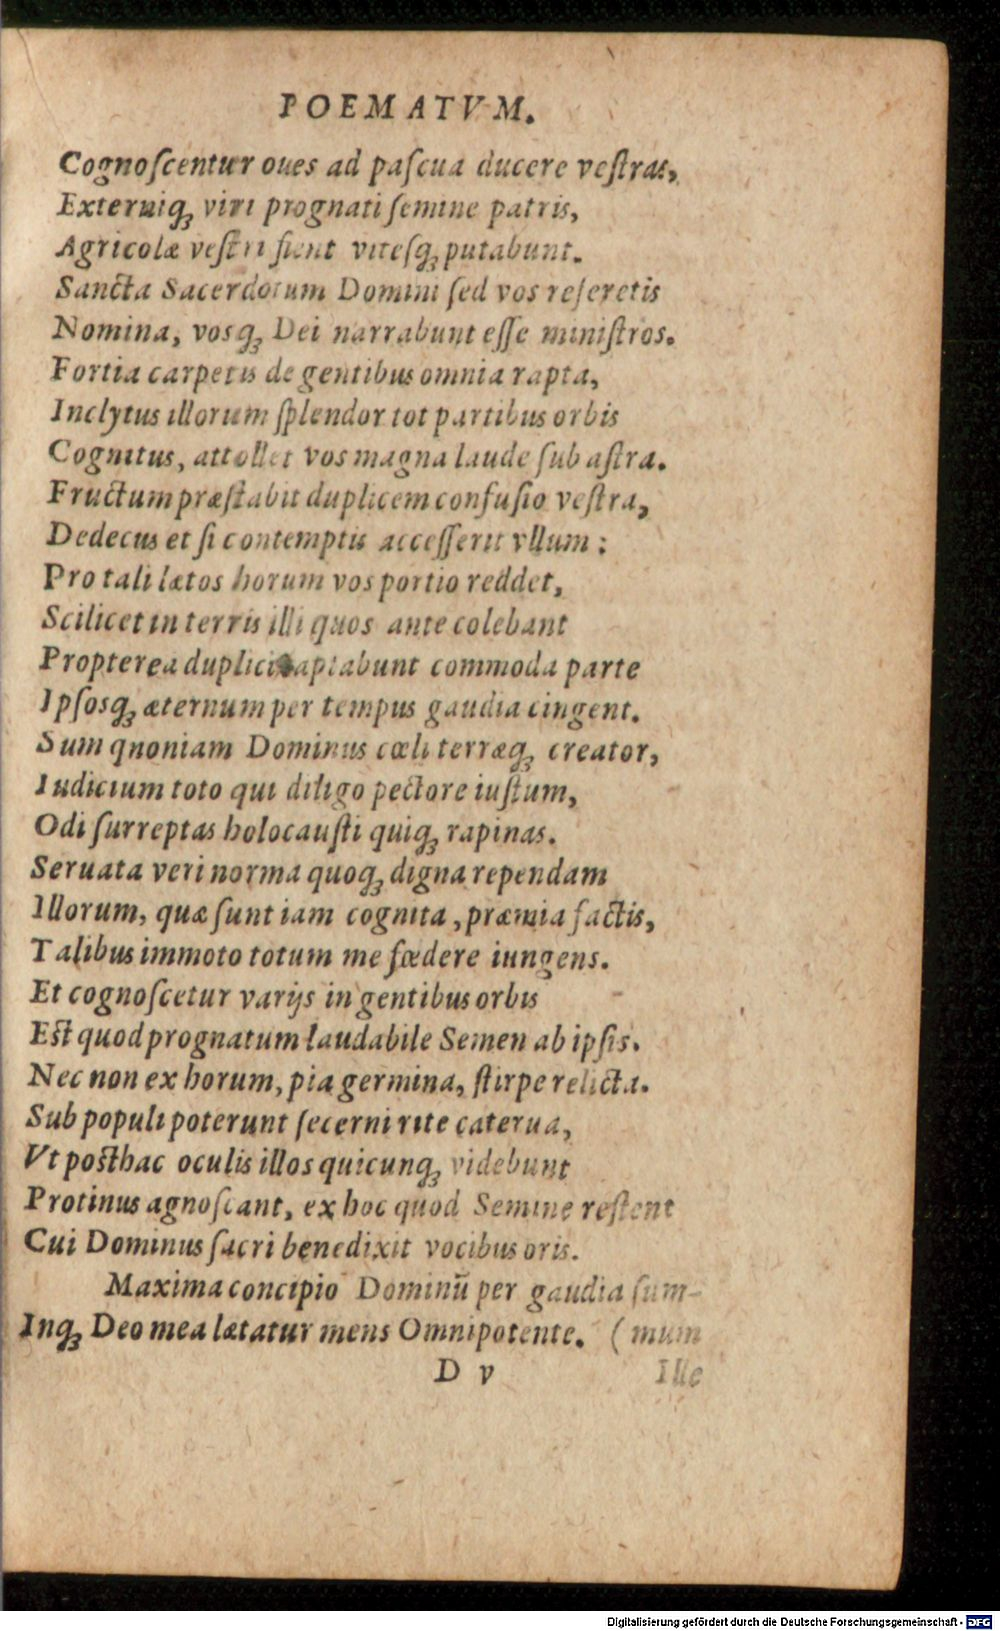 POEMATVM.
Cognoſcentur oues ad paſcua ducere veſtras,
Externiq́ꝫ viri prognati ſemine patris,
Agricolæ veſtri fient viteſq́ꝫ putabunt.
Sancta Sacerdotum Domini ſed vos referetis
Nomina, vosq́ꝫ Dei narrabunt eſſe miniſtros.
Fortia carpetis de gentibus omnia rapta,
Inclytus illorum ſplendor tot partibus orbis
Cognitus, attollet vos magna laude ſub aſtra.
Fructum præſtabit duplicem confuſio veſtra,
Dedecus et ſi contemptis acceſſerit vllum:
Pro tali lætos horum vos portio reddet,
Scilicet in terris illi quos ante colebant
Propterea duplici captabunt commoda parte
Ipſosq́ꝫ æternum per tempus gaudia cingent.
Sum qnoniam Dominus cœli terræq́ꝫ creator,
Iudicium toto qui diligo pectore iuſtum,
Odi ſurreptas holocauſti quiq́ꝫ rapinas.
Seruata veri norma quoq́ꝫ digna rependam
Illorum, quæ ſunt iam cognita, præmia factis,
Talibus immoto totum me fœdere iungens.
Et cognoſcetur varijs in gentibus orbis
Eſt quod prognatum laudabile Semen ab ipſis.
Nec non ex horum, pia germina, ſtirpe relicta.
Sub populi poterunt ſecerni rite caterua,
Vt poſthac oculis illos quicunq́ꝫ videbunt
Protinus agnoſcant, ex hoc quod Semine reſtent
Cui Dominus ſacri benedixit vocibus oris.
Maxima concipio Dominū per gaudia ſum-
Inq́ꝫ Deo mea lætatur mens Omnipotente. (mum
D v
Ille
Digitalisierung gefördert durch die Deutsche Forschungsgemeinschaft - DFG